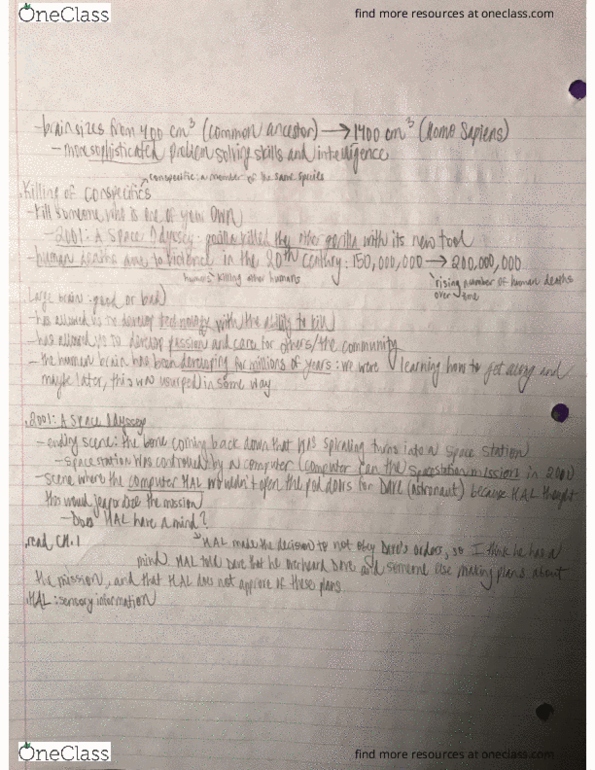 OneClass
find more resources at oneclass.com
-brain sizes from 400 cm³ (common ancestor) → 1400 cm³ (Homo Sapiens)
-more sophisticated problem solving skills and intelligence
conspecific: a member of the same species
Killing of conspecifics
-kill someone who is one of your own
-2001: A Space Odyssey: gorilla killed the other gorilla with its new tool
-human deaths due to violence in the 20th century: 150,000,000 → 200,000,000
humans killing other humans
rising number of human deaths
over time
Large brain: good or bad
-has allowed us to develop technology with the ability to kill
-has allowed us to develop passion and care for others/the community
-the human brain has been developing for millions of years: we were learning how to get along and
maybe later, this was usurped in some way
2001: A Space Odyssey
-ending scene: the bone coming back down that was spiraling turns into a space station
-space station was controlled by a computer (computer ran the space station missions in 2001)
-scene where the computer HAL wouldn't open the pod doors for DAVE (astronaut) because HAL thought
this would jeopardize the mission
-Does HAL have a mind?
HAL made the decision to not obey Dave's orders, so I think he has a
read CH. 1
mind. HAL told Dave that he overheard Dave and someone else making plans about
the mission, and that HAL does not approve of these plans
HAL: sensory information
OneClass
find more resources at oneclass.com